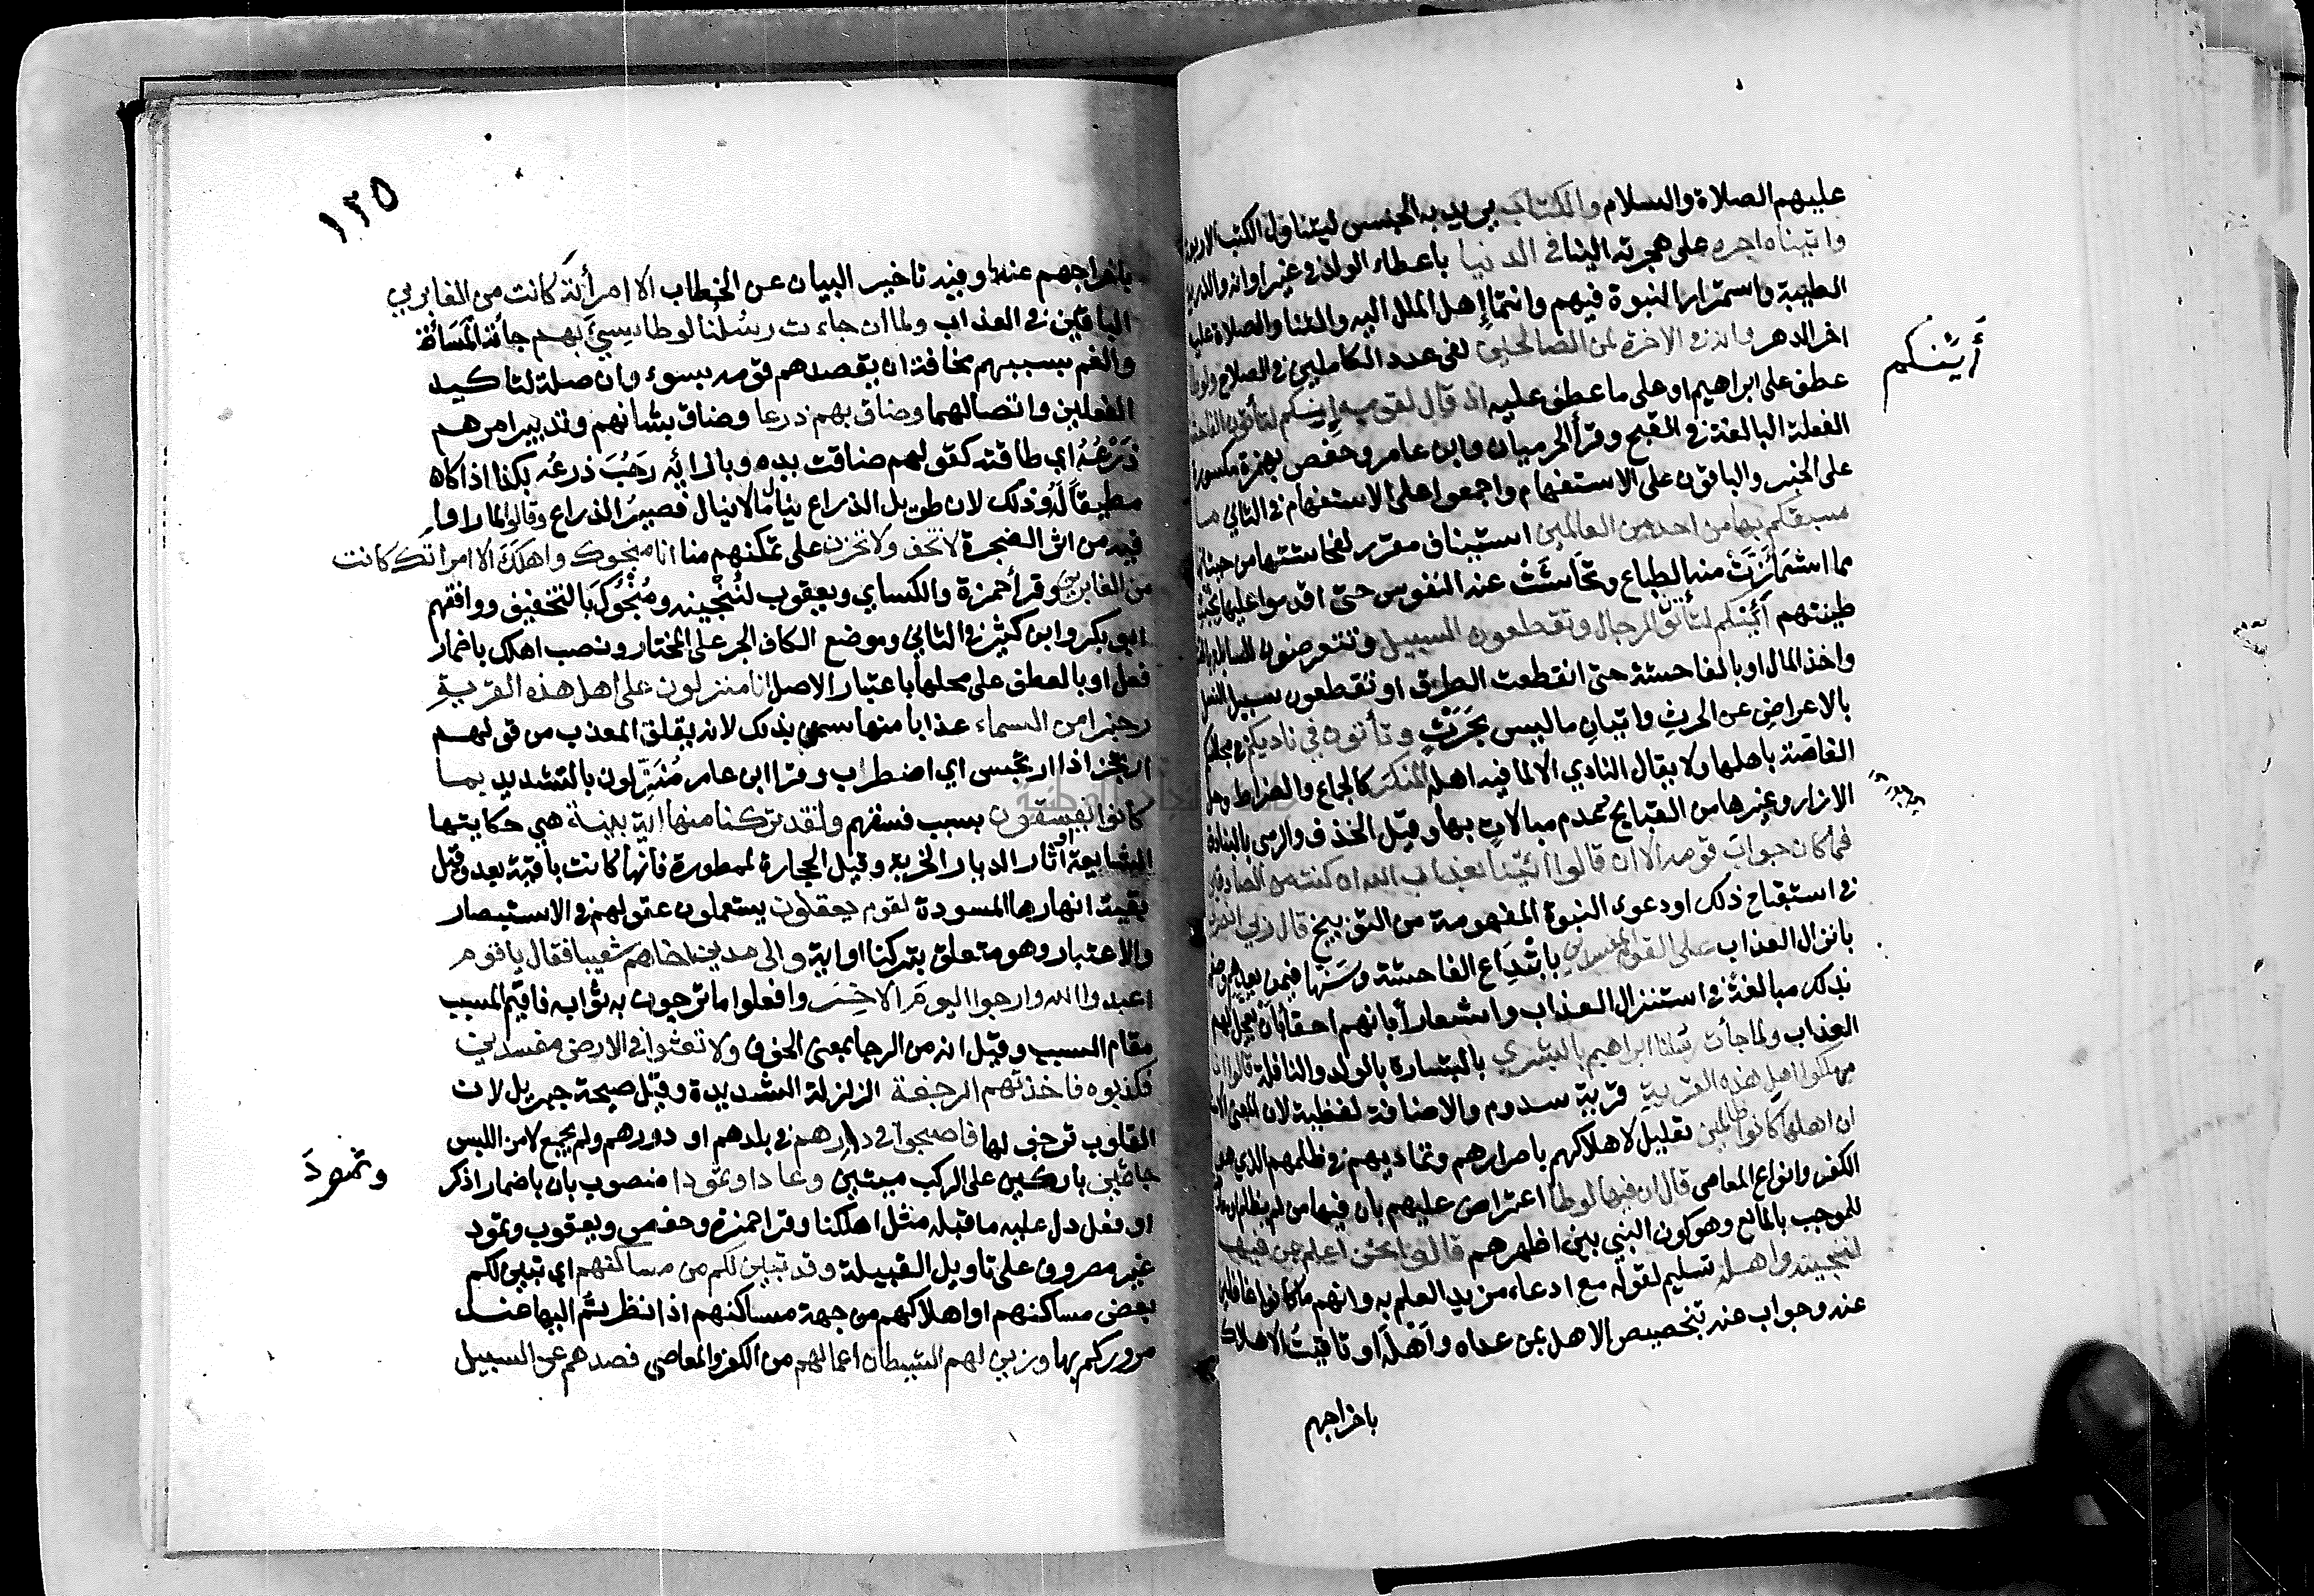 عليهم الصلاة والسلام والكتاب يريد به الجنس ليتناول الكتب الاربعة
واتيناه اجره على هجرته الينا في الدنيا باعطاء الولد في غير اوانه والذرية
الطيبة واستمرار النبوة فيهم وانتماإ اهل الملل اليه والثنا والصلاة عليه
اخر الدهر وانه في الاخرة لمن الصالحين لفى عدد الكاملين في الصلاح ولوطا
عطف على ابراهيم او على ما عطف عليه اذ قال لقومه إنكم لتأتون الفاحشة
أَيِنكم
الفعلة البالغة في القبح وقرأ الحرميان وابن عامر وحفص بهمزة مكسورة
على الخبر والباقون على الاستفهام واجمعوا على الاستفهام في الثاني ما
سبقكم بها من احد من العالمين استيناف مقرر لفاحشتها من حيث انها
مما اشمَأَزَّتْ منه الطباع وتحاشَتْ عنه النفوس حتى اقدموا عليها لخبث
طينتهم أَئِنكم لتأتون الرجال وتقطعون السبيل وتتعرضون للسابلة بالقتل
واخذ المال او بالفاحشة حتى انقطعت الطرق او تقطعون سبيل النسل
بالاعراض عن الحرث واتيان ما ليس بحَرَثٍ وتأتون في ناديكم في مجلسكم
الغاصة باهلها ولا يقال النادي الا لما فيه اهله المنكرَ كالجماع والضراط وحل
الازار وغيرها من القبايح لعدم مبالات بها وقيل الخذف والرمي بالبنادق
فما كان جواب قومه الا ان قالوا ائتنا بعذاب الله ان كنت من الصادقين
في استقباح ذلك او دعوى النبوة المفهومة من التوبيخ قال رب انصرني
بانزال العذاب على القوم المفسدين بابتداع الفاحشة وسَنّها فيمن بعدهم وصفهم
بذلك مبالغة في استنزال العذاب واشعاراً بانهم احقاء بان يعجل لهم
العذاب ولما جاءت رسلنا ابراهيم بالبشرى بالبشارة بالولد والنافلة قالوا انا
مهلكوا اهل هذه القرية قرية سدوم والاضافة لفظية لان المعنى الاستقبال
ان اهلها كانوا ظالمين تعليل لاهلاكهم باصرارهم وتماديهم في ظلمهم الذي هو
الكفر وانواع المعاصي قال ان فيها لوطا اعتراض عليهم بان فيها من لم يظلم او معارضة
للموجب بالمانع وهو كون النبي بين اظهرهم قالوا نحن اعلم بمن فيها
لننجينه واهله تسليم لقوله مع ادعاء مزيد العلم به وانهم ما كانوا غافلين
عنه وجواب عنه بتخصيص الاهل بمن عداه واَهْلَه او تاقيتُ الاهلاك
باخراجهم
١٣٥
باخراجهم عنها وفيه تاخير البيان عن الخطاب الا امرأته كانت من الغابرين
الباقين في العذاب ولما ان جاءت رسلُنا لوطا سِيْئَ بهم جاءته المَسَاءة
والغم بسببهم مخافة ان يقصدهم قومه بسوء وان صلة لتاكيد
الفعلين واتصالهما وضاق بهم ذرعا وضاق بشانهم وتدبير امرهم
ذَرْعُهُ اي طاقته كقولهم ضاقت يده وبازائه رَحُبَ ذرعُه بكذا اذا كان
مطيقاً لَهُ وذلك لان طويل الذراع ينال ما لا ينال قصيرُ الذراع وقالوا لما راوا
فيه من اثر الضجرة لا تخف ولا تحزن على تمكنهم منا انا منجوك واهلك الا امراتك كانت
من الغابرين وقرأ حمزة والكساي ويعقوب لنُنْجينه ومُنْجُوكَ بالتخفيف ووافقهم
ابو بكر وابن كثير في الثاني وموضع الكاف الجر على المختار ونصب اهلك باضمار
فعل او بالعطف على محلها باعتبار الاصل انا منزلون على اهل هذه القريةِ
رجزا من السماء عذابا منها سمي بذلك لانه يقلق المعذب من قولهم
ارتجز اذا ارتجس اي اضطراب وقرا ابن عامر مُنَزِّلون بالتشديد بما
كانوا يفسقون بسبب فسقهم ولقد تركنا منها آية بينة هي حكايتها
الشايعة او آثار الديار الخربة وقيل الحجارة الممطورة فانها كانت باقية بعد وقيل
بقية انهارها المسودة لقوم يعقلون يستعملون عقولهم في الاستبصار
والاعتبار وهو متعلق بتركنا او اية والى مدين اخاهم شعيبا فقال يا قوم
اعبدوا الله وارجوا اليومَ الاخِرَ وافعلوا ما ترجون به ثوابه فاقيم المسبب
مقام السبب وقيل انه من الرجا بمعنى الخوف ولا تعثوا في الارض مفسدين
فكذبوه فاخذتهم الرجفة الزلزلة الشديدة وقيل صيحة جبريل لان
القلوب ترجف لها فاصبحوا في دارهم في بلدهم او دورهم ولم يجمع لامن اللبس
جاثمين باركين على الركب ميتين وعادا وثمودا منصوبان باضمار اذكر
وثمودَ
او فعل دل عليه ما قبله مثل اهلكنا وقرا حمزة وحفص ويعقوب وثمود
غير مصروف على تاويل القبيلة وقد تبين لكم من مساكنهم اي تبين لكم
بعض مساكنهم او اهلاكهم من جهة مساكنهم اذا نظرتم اليها عند
مروركم بها وزين لهم الشيطان اعمالهم من الكفر والمعاصي فصدهم عن السبيل